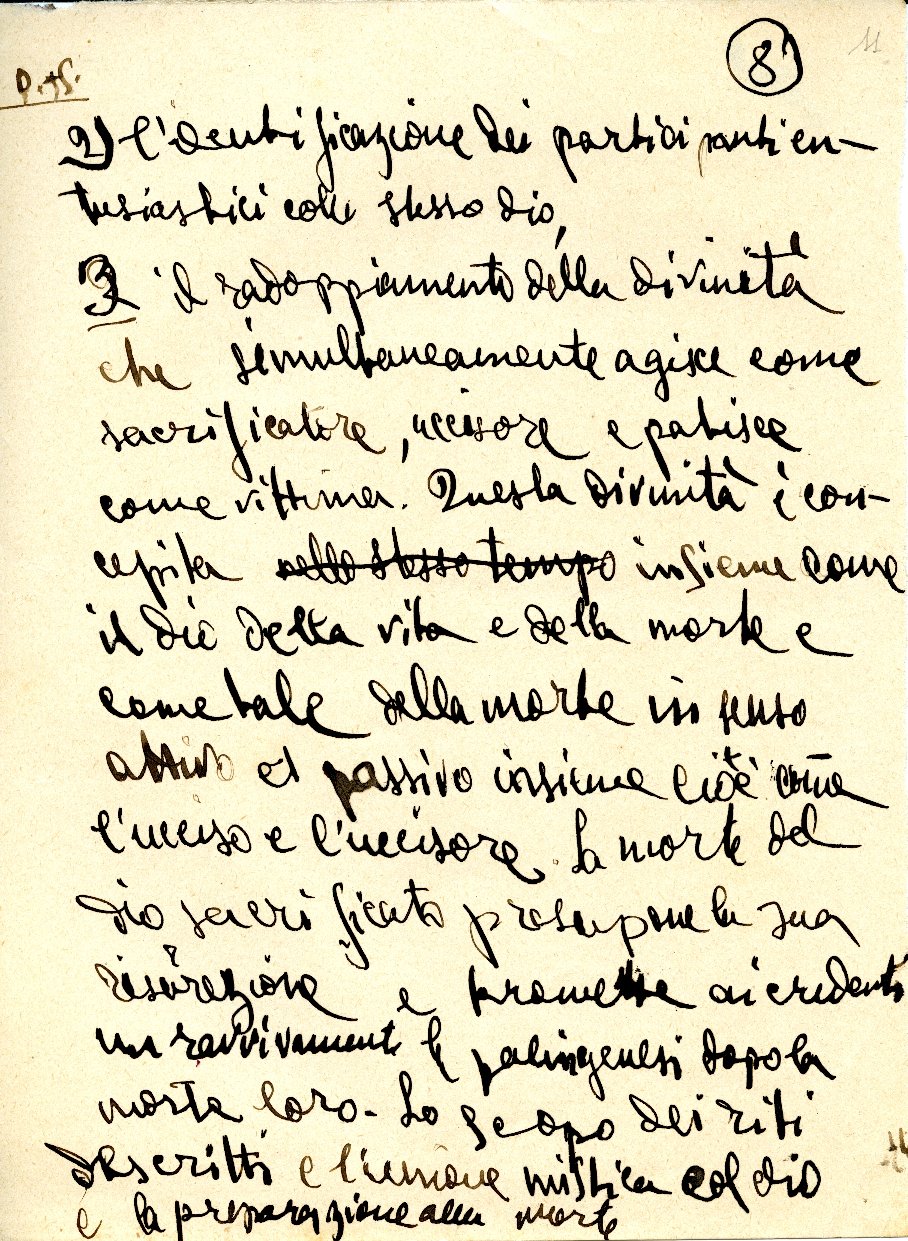 8 11
2) l'identificazione dei partecipanti en-
tusiastici collo stesso dio,
3 il radoppiamento della divinità
che simultaneamente agisce come
sacrificatore, uccisore e patisce
come vittima. Questa divinità è con-
cepita nello stesso tempo insieme come
il dio della vita e della morte e
come tale della morte in senso
attivo et passivo insieme cioè come
l'ucciso e l'uccisore. La morte del
dio sacrificato presupone la sua
risurezione e promette ai credenti
un ravvivamento la palingenesi dopo la
morte loro - Lo scopo dei riti
descritti e l'unione mistica col dio
e la preparazione alla morte